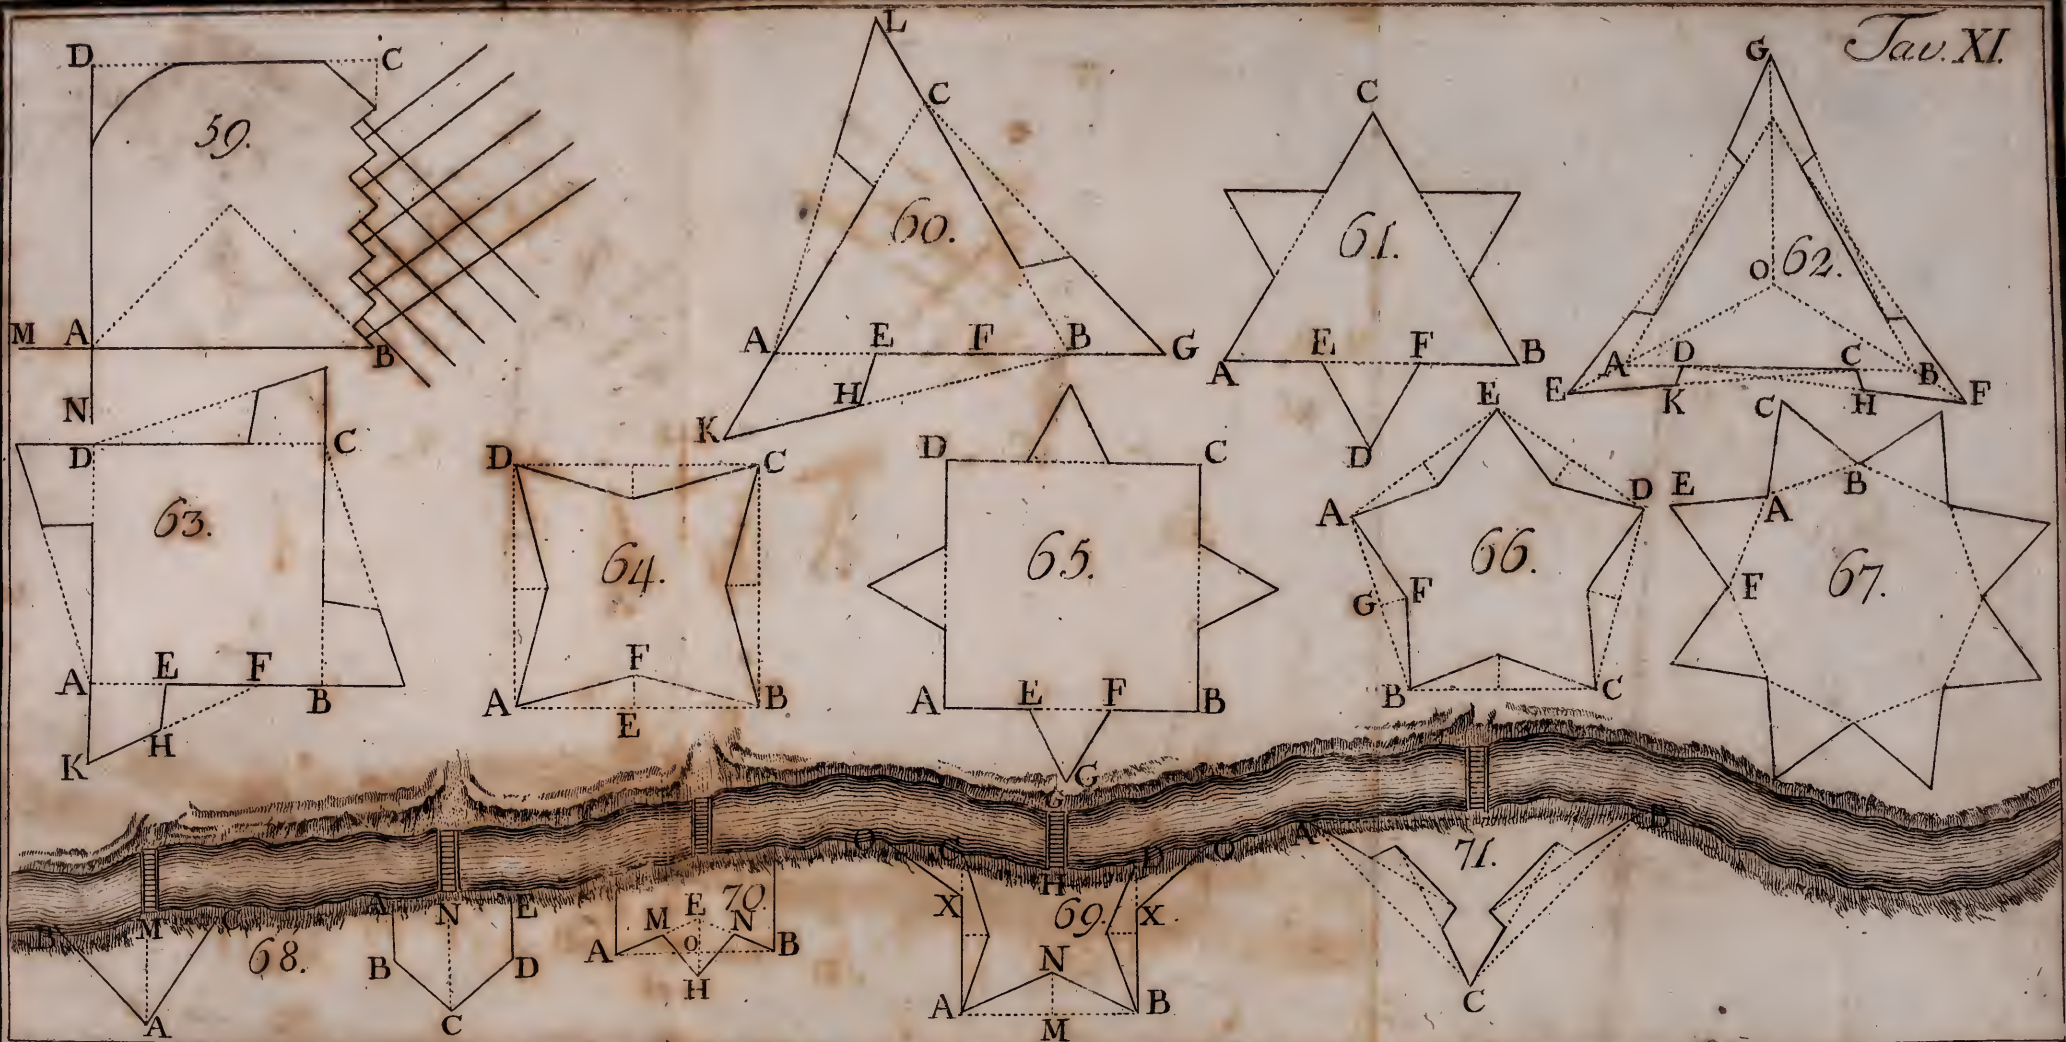 Tav. XI.
D C
59.
M A B
N
L
C
60.
A E F B G
H
K
C
61.
A E F B
D
G
O 62.
A D C B
E K H F
D C
63.
A E F B
H
K
D C
64.
F
A B
E
D C
65.
A E F B
G
E
A D
66.
G F
B C
C
E B
A
F 67.
B M C
68.
A
A N E
B D
C
70.
M E N
A O B
H
G
O C D O
H
X 69. X
N
A B
M
A B
71.
C